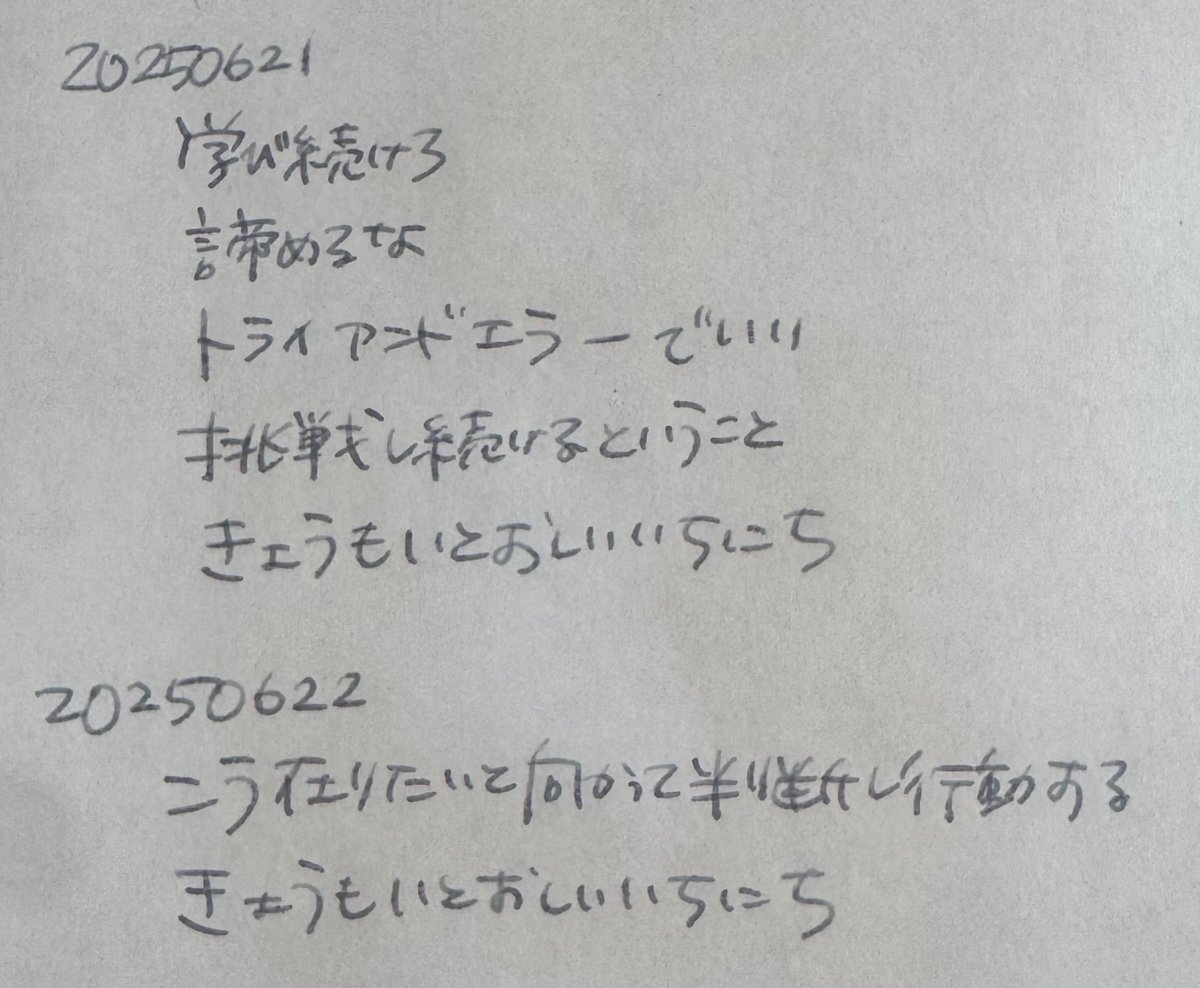 20250621
学び続けろ
諦めるな
トライアンドエラーでいい
挑戦し続けるということ
きょうもいとおしいいちにち
20250622
こう在りたいと向かって判断し行動する
きょうもいとおしいいちにち